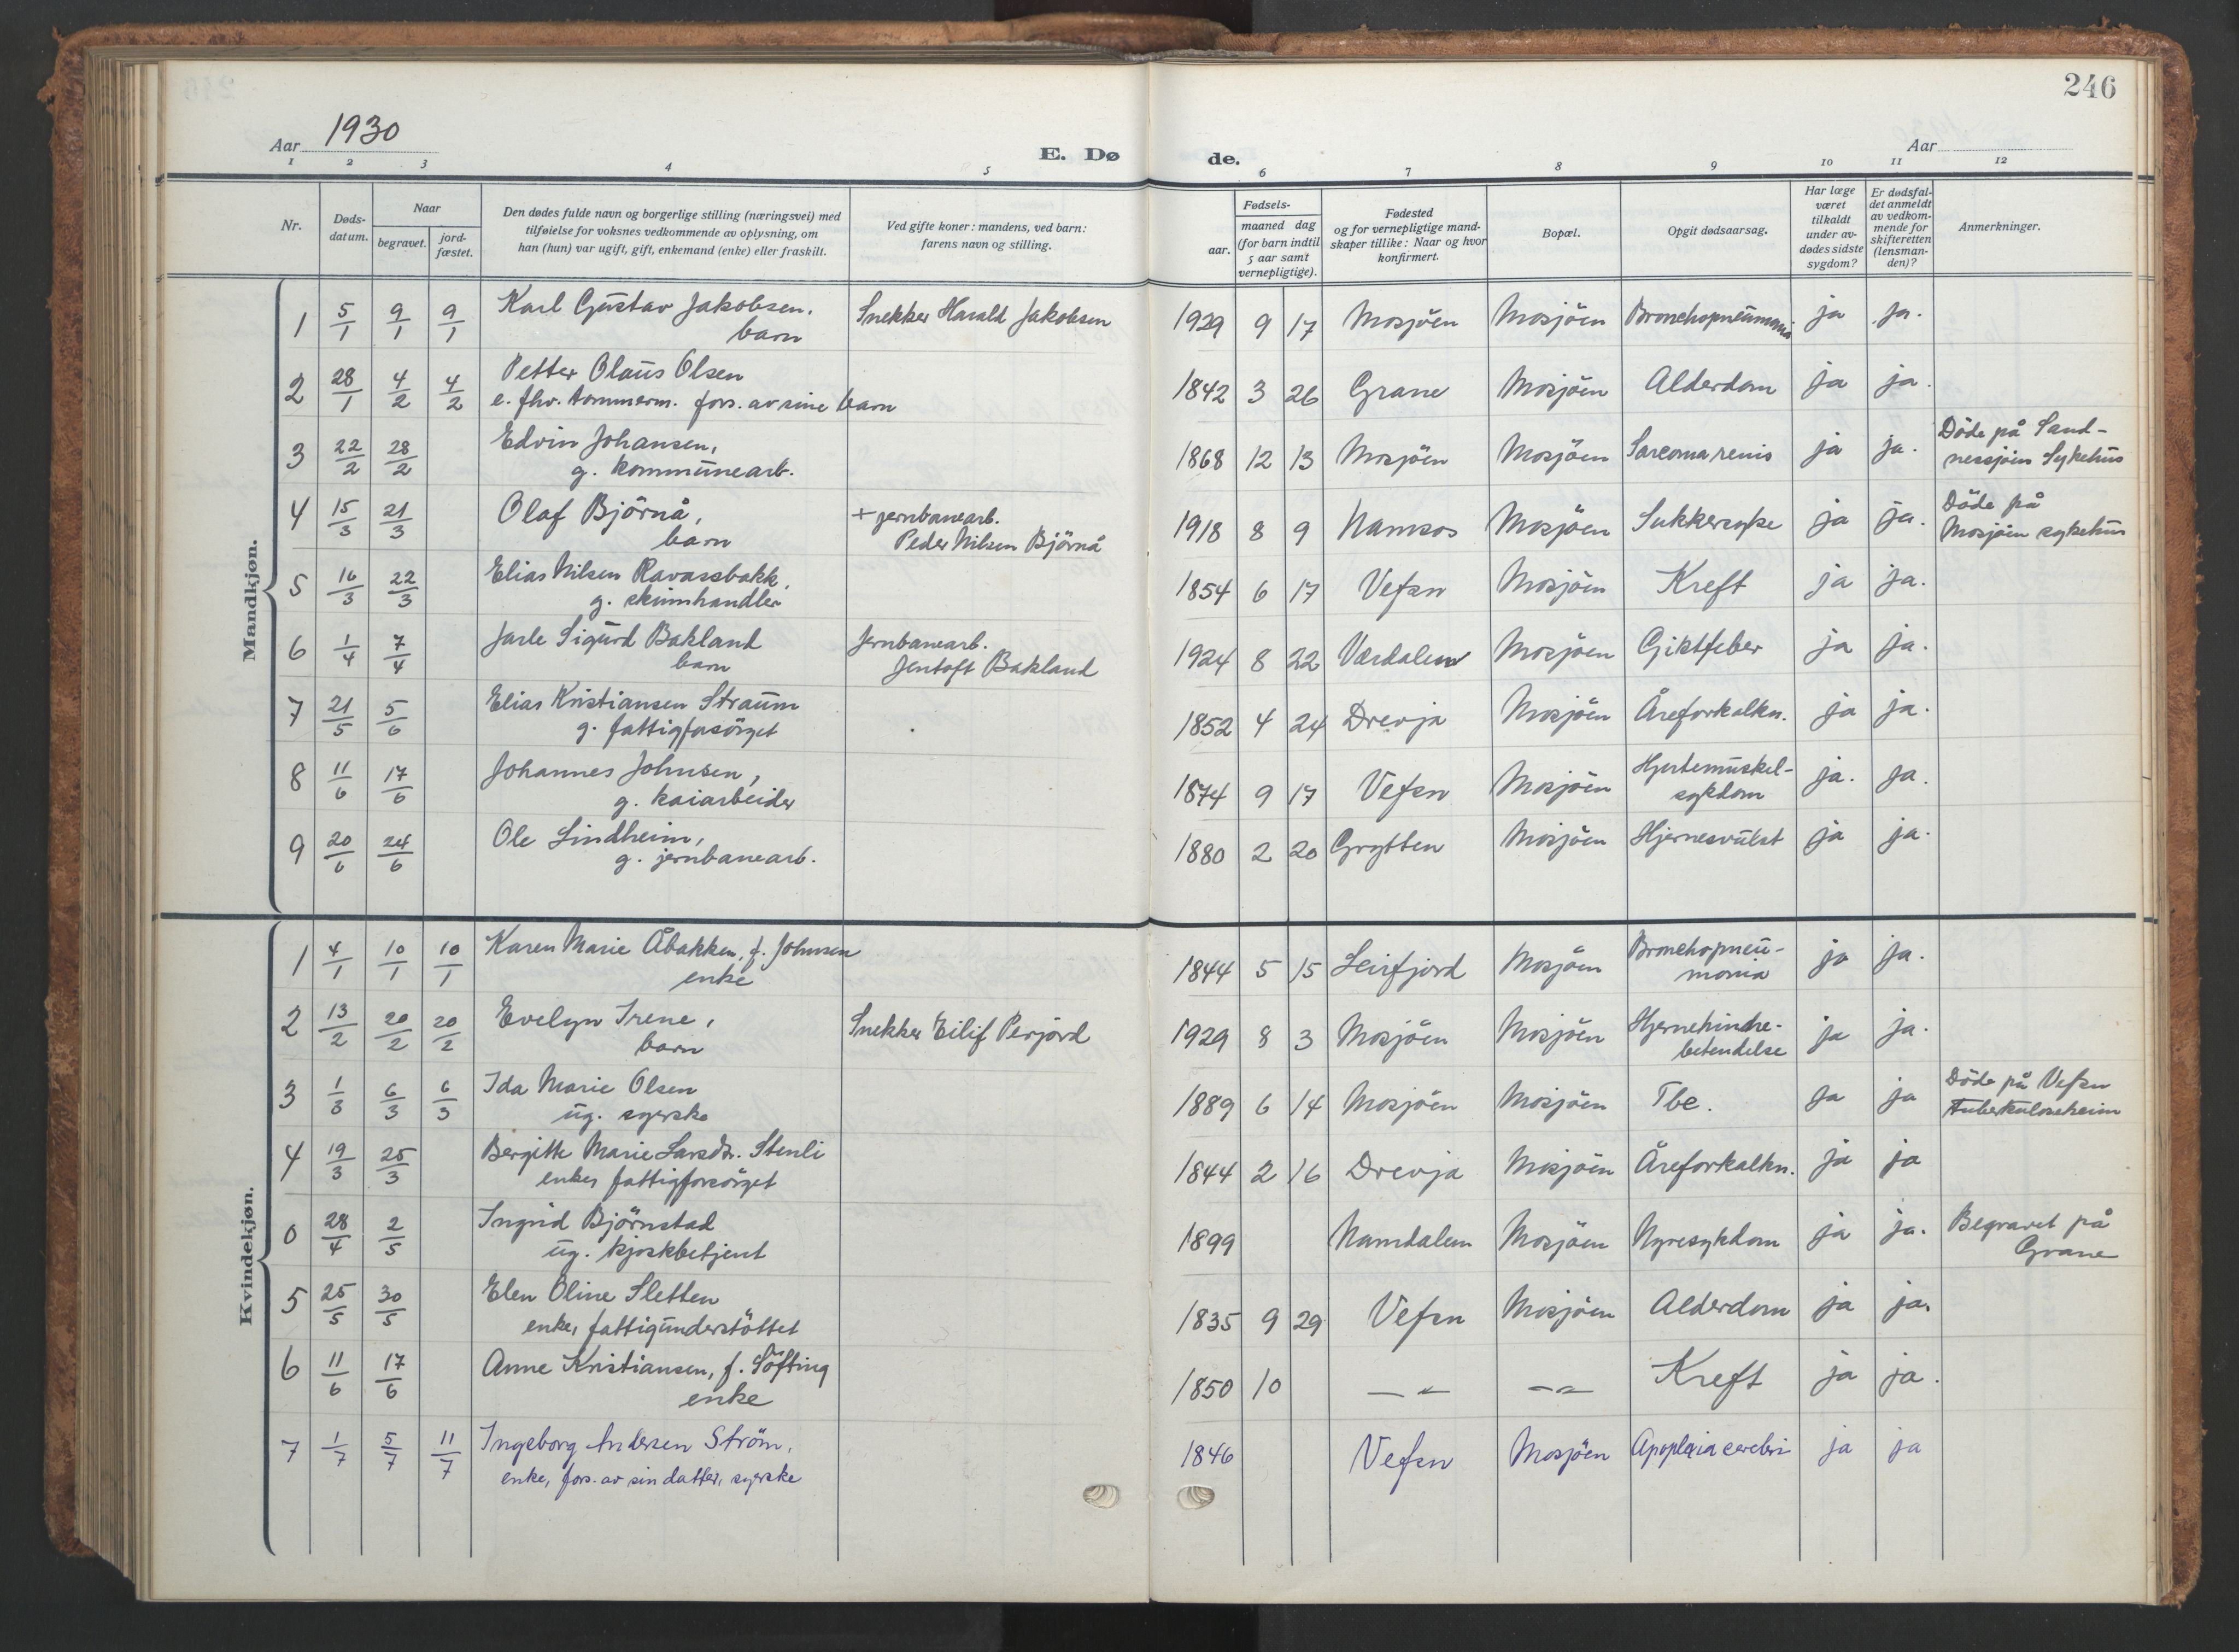 246
Aar 1930
E. Døde.
Aar
1 2 3 4 5 6 7 8 9 10 11 12
Nr.
Døds-
datum.
Naar
begravet.
jord-
fæstet.
Den dødes fulde navn og borgerlige stilling (næringsvei) med
tilføielse for voksnes vedkommende av oplysning, om
han (hun) var ugift, gift, enkemand (enke) eller fraskilt.
Ved gifte koner: mandens, ved barn:
farens navn og stilling.
Fødsels-
aar.
maaned dag
(for barn indtil
5 aar samt
vernepligtige).
Fødested
og for vernepligtige mand-
skaper tillike: Naar og hvor
konfirmert.
Bopæl.
Opgit dødsaarsag.
Har læge
været
tilkaldt
under av-
dødes sidste
sygdom?
Er dødsfal-
det anmeldt
av vedkom-
mende for
skifteretten
(lensman-
den)?
Anmerkninger.
Mandkjøn.
1 5/1 9/1 9/1 Karl Gustav Jakobsen, Snekker Harald Jakobsen 1929 9 17 Mosjöen Mosjöen Bronchopneumonia ja ja.
barn
2 28/1 4/2 4/2 Petter Olaus Olsen 1842 3 26 Grane Mosjöen Alderdom ja ja.
e. fhv. tommerm. fors. av sine barn
3 22/2 28/2 Edvin Johansen, 1868 12 13 Mosjöen Mosjöen Sarcoma renis ja ja. Döde på Sand-
g. kommunearb. nessjöen Sykehus
4 15/3 21/3 Olaf Björnå, + jernbanearb. 1918 8 9 Namsos Mosjöen Sukkersyke ja ja. Döde på
barn Peder Nilsen Björnå Mosjöen sykehus
5 16/3 22/3 Elias Nilsen Ravassbakk, 1854 6 17 Vefsn Mosjöen Kreft ja ja.
g. skinnhandler
6 1/4 7/4 Jarle Sigurd Bakland Jernbanearb. 1924 8 22 Værdalen Mosjöen Giktfeber ja ja.
barn Jentoft Bakland
7 21/5 5/6 Elias Kristiansen Straum 1852 4 24 Drevja Mosjöen Åreforkalkn. ja ja.
g. fattigforsörget
8 11/6 17/6 Johannes Johnsen, 1874 9 17 Vefsn Mosjöen Hjertemuskel- ja. ja.
g. kaiarbeider sykdom
9 20/6 24/6 Ole Lindheim, 1880 2 20 Grytten Mosjöen Hjernesvulst ja ja.
g. jernbanearb.
Kvindekjøn.
1 4/1 10/1 10/1 Karen Marie Åbakken, f. Johnsen 1844 5 15 Leirfjord Mosjöen Bronchopneu- ja ja.
enke monia
2 13/2 20/2 20/2 Evelyn Irene, Snekker Eilif Perjord 1929 8 3 Mosjöen Mosjöen Hjernehinne- ja ja.
barn betendelse
3 1/3 6/3 6/3 Ida Marie Olsen 1889 6 14 Mosjöen Mosjöen Tbc. ja ja Döde på Vefsn
ug. syerske Tuberkuloseheim
4 19/3 25/3 Bergitte Marie Larsdr. Stenli 1844 2 16 Drevja Mosjöen Åreforkalkn. ja ja
enke, fattigforsörget
0 28/4 2/5 Ingrid Björnstad 1899 Namdalen Mosjöen Nyresykdom ja ja. Begravet på
ug. kjoskbetjent Grane
5 25/5 30/5 Elen Oline Sletten 1835 9 29 Vefsn Mosjöen Alderdom ja ja.
enke, fattigunderstöttet
6 11/6 17/6 Anne Kristiansen, f. Söfting 1850 10 — " — " — Kreft ja ja.
enke
7 1/7 5/7 11/7 Ingeborg Andersen Ström, 1846 Vefsn Mosjöen Apoplexia cerebri ja ja
enke, fors. av sin datter, syerske